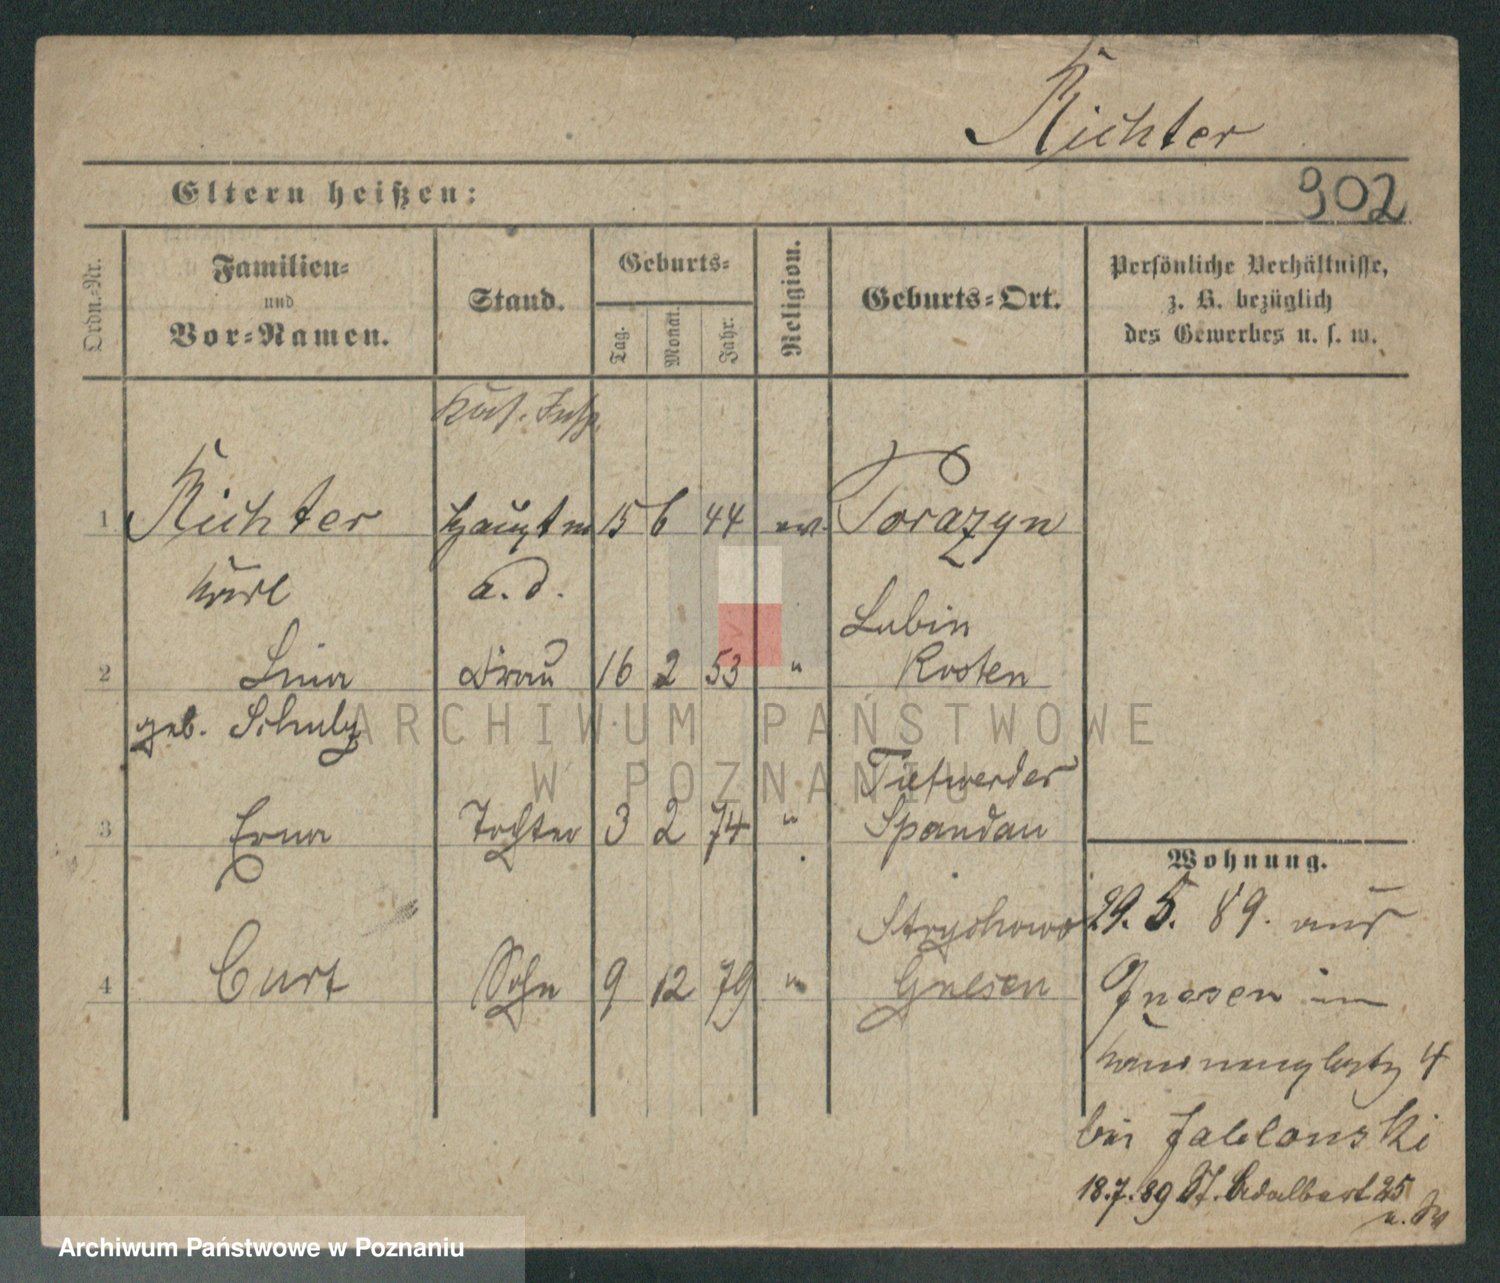 Richter
Eltern heißen:
902
Ordn.-Nr.
Familien-
und
Vor-Namen.
Stand.
Geburts-
Tag.
Monat.
Jahr.
Religion.
Geburts-Ort.
Persönliche Verhältnisse,
z. B. bezüglich
des Gewerbes u. s. w.
1 Richter Hauptm 15 6 44 ev. Gorazyn
Karl a. D.
Lubin
2 Lina Frau 16 2 53 " Kosten
geb. Schulz
Tiefwerder
3 Erna Tochter 3 2 74 " Spandau
Strychowo
4 Curt Sohn 9 12 79 " Gnesen
Wohnung.
29. 5. 89. aus
Gnesen in
4
bei Jablonski
18.7.89 St. Adalbert 25
ARCHIWUM PAŃSTWOWE
W POZNANIU
Archiwum Państwowe w Poznaniu